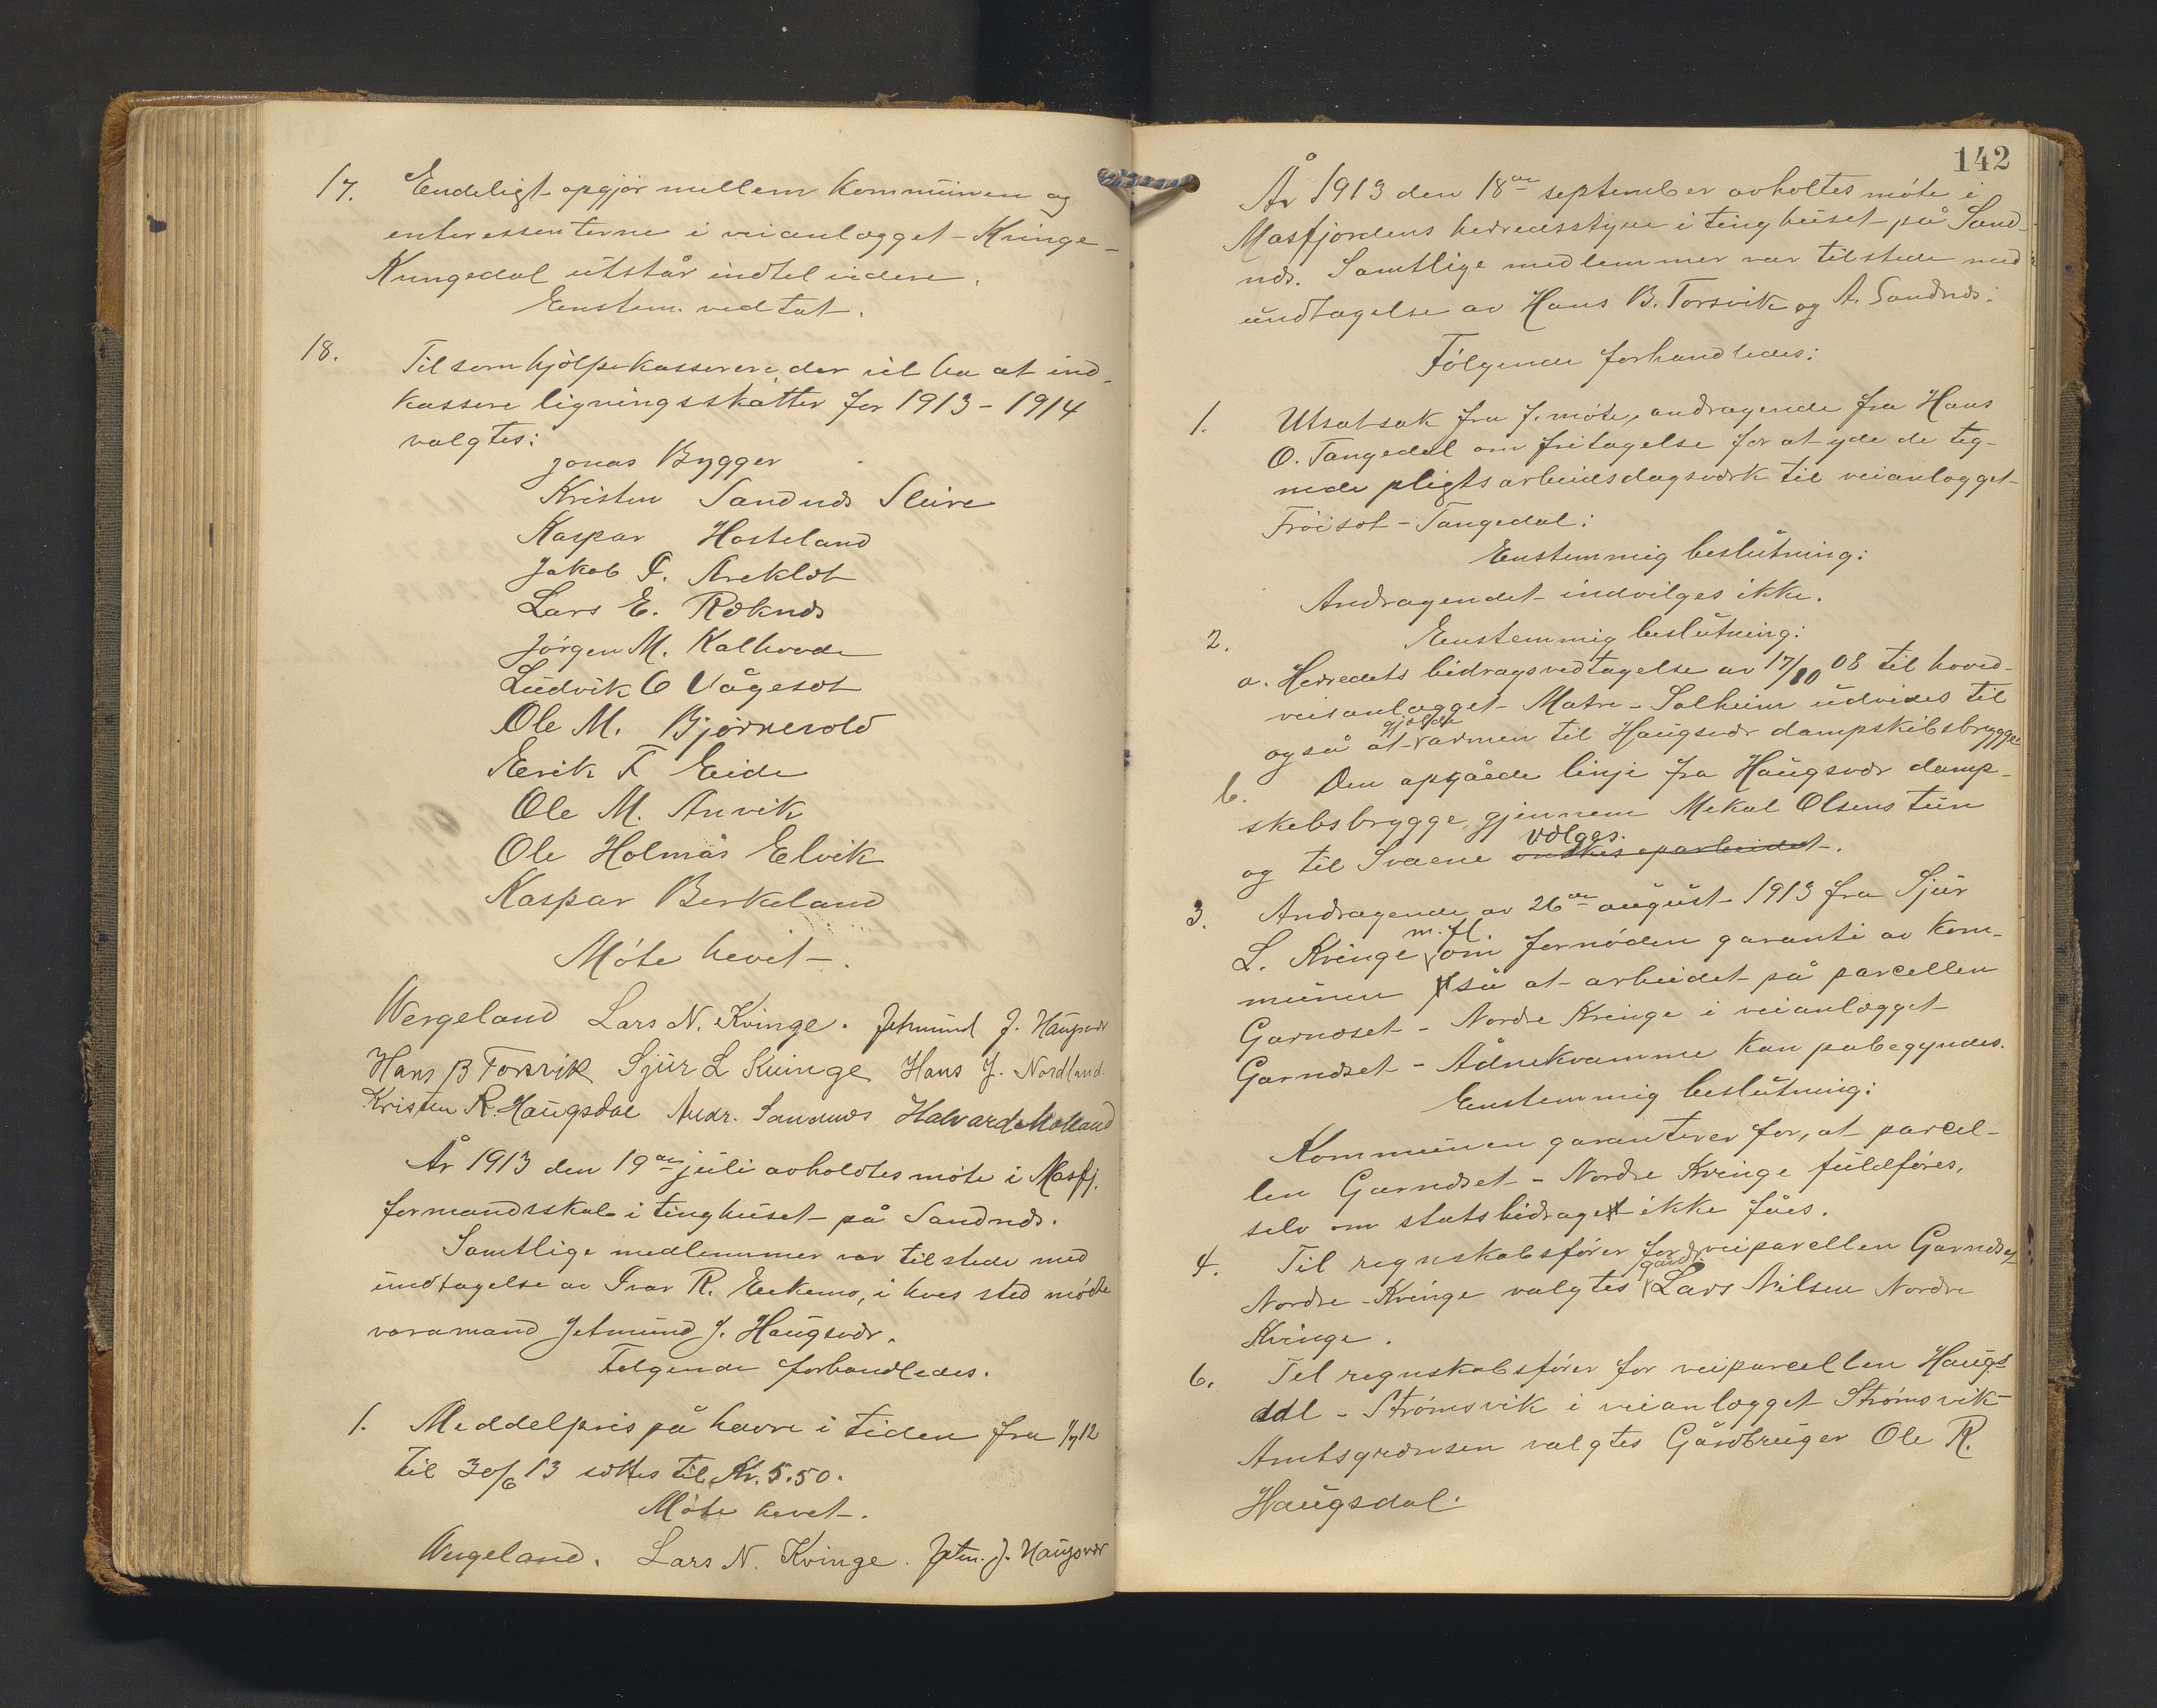 17. Endeligt opgjør mellem kommunen og
enteressenterne i veianlægget Kvinge-
Kvingedal utstår indtil videre.
Enstem. vedtat.
18. Til som hjølpekasserere, der vil ha at ind-
kassere ligningsskatter for 1913-1914
valgtes:
Jonas Bygger
Kristen Sandnæs Sleire
Kaspar Hosteland
Jakob P. Areklæt
Lars E. Røknæs
Jørgen M. Kalhovde
Ludvik O Vågeset
Ole M. Bjørnevold
Eerik F Eide
Ole M. Anvik
Ole Holmås Elvik
Kaspar Berkeland
Møte hevet.
Wergeland Lars N. Kvinge. Jetmund J. Haugsvær
Hans B Torsvik Sjur L Kvinge Hans J. Nordland.
Kristen R. Haugsdal Andr. Sandnæs Halvard Molland
År 1913 den 19de juli avholdtes møte i Masfj.
formandsskab i tinghuset på Sandnæs.
Samtlige medlemmer var tilstede med
undtagelse av Ivar R. Eekemo, i hves sted mødte
varamand Jetmund J. Haugsvær.
Følgende forhandledes.
1. Meddelpris på havre i tiden fra 1/7 12
til 30/6 13 sættes til Kr. 5.50.
Møte hevet.
Wergeland. Lars N. Kvinge. Jetm. J. Haugsvær
142
År 1913 den 18de september avholtes møte i
Masfjordens herredsstyre i tinghuset på Sand-
næs. Samtlige medlemmer var tilstede med
undtagelse av Hans B. Torsvik og A. Sandnæs.
Følgende forhandledes:
1. Utsat sak fra f. møte, andragende fra Hans
O. Tangedal om fritagelse for at yde de teg-
nede pligtsarbeidsdagsværk til veianlægget
Frøiset-Tangedal:
Enstemmig beslutning:
Andragendet indvilges ikke.
2. Eenstemmig beslutning:
a. Herredets bidragsvedtagelse av 17/10 08 til hoved-
veianlægget Matre-Solheim udvides til
også at gjælde armen til Haugsvær dampskibsbrygge
b. Den opgåede linje fra Haugsvær damp-
skebsbrygge, gjennem Mekal Olsens tun
og til Svaene ønskes oparbeidet vælges.
3. Andragende av 26de august 1913 fra Sjur
L. Kvinge m. fl om fornøden garanti av kom-
munen så at arbeidet på parcellen
Garnæset - Nordre Kvinge i veianlægget
Garnæset - Ådnekvamme kan påbegyndes.
Enstemmig beslutning:
Kommunen garanterer for, at parcel-
len Garnæset - Nordre Kvinge fuldføres,
selv om statsbidraget ikke fåes.
4. Til regnskabsfører for veiparcellen Garnæset
Nordre-Kvinge valgtes gårdb. Lars Nilsen Nordre
Kvinge.
6. Til regnskabsfører for veiparcellen Haugs-
dal - Strømsvik i veianlægget Strømsvik-
Amtsgrænsen valgtes Gårdbruger Ole R.
Haugsdal.